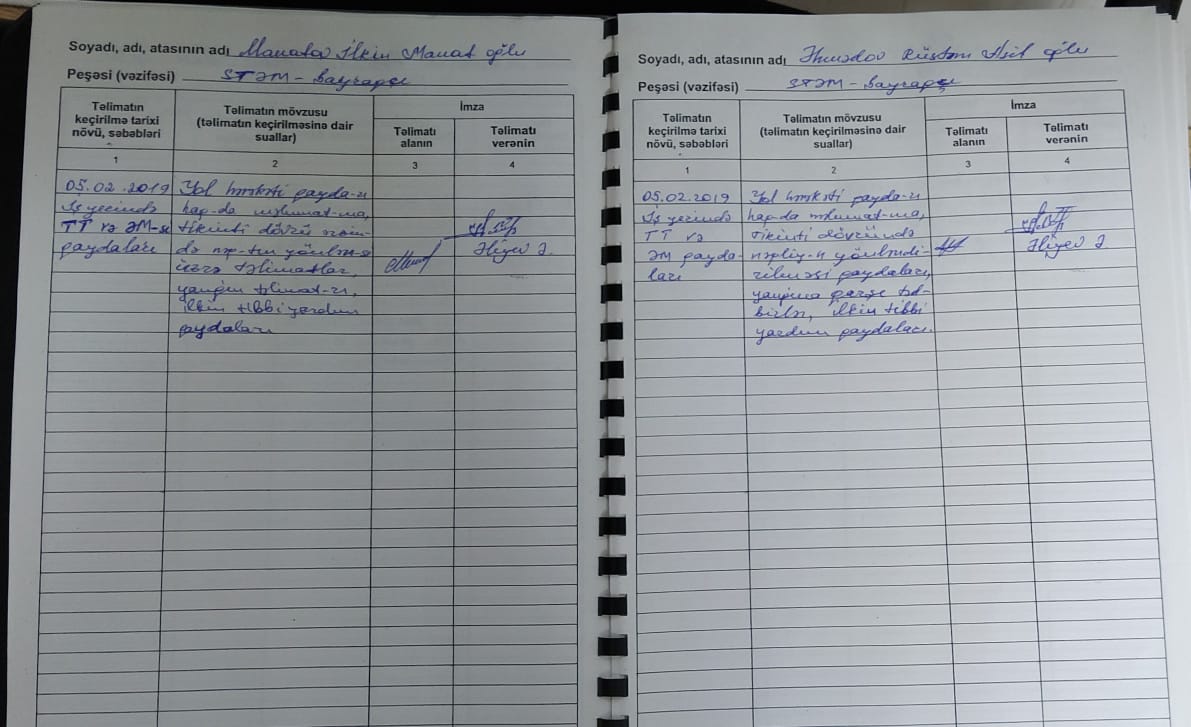 Soyadı, adı, atasının adı Manafov İlkin Manaf oğlu
Peşəsi (vəzifəsi) STƏM - bayraqçı
Təlimatın
keçirilmə tarixi
növü, səbəbləri
Təlimatın mövzusu
(təlimatın keçirilməsinə dair
suallar)
İmza
Təlimatı
alanın
Təlimatı
verənin
1 2 3 4
05.02.2019 Yol hərəkəti qayda-ı
İş yerində haq-da məlumat-ma,
TT və ƏM-si tikinti dövrü
qaydaları də nəq-tın
üzrə təlimatlar, Əliyev Ə.
yanğın təlimat-rı,
ilkin tibbi yardım
qaydaları
Soyadı, adı, atasının adı Rüstəm oğlu
Peşəsi (vəzifəsi) STƏM - bayraqçı
Təlimatın
keçirilmə tarixi
növü, səbəbləri
Təlimatın mövzusu
(təlimatın keçirilməsinə dair
suallar)
İmza
Təlimatı
alanın
Təlimatı
verənin
1 2 3 4
05.02.2019 Yol hərəkəti qayda-ı
İş yerində haq-da məlumat-ma,
TT və tikinti dövründə
ƏM qayda- nəqliy-ı Əliyev Ə
ları qaydaları,
yanğına qarşı təd-
birlər, ilkin tibbi
yardım qaydaları.